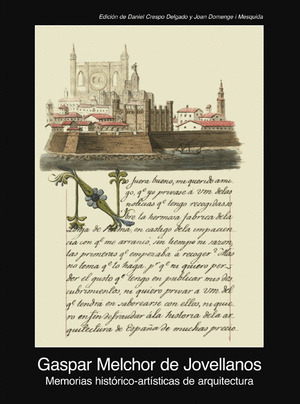 Edición de Daniel Crespo Delgado y Joan Domenge i Mesquida
No fuera bueno, mi querido ami-
go, qe. yo privase á Vm. de las
noticias qe. tengo recogidas so-
bre la hermosa fabrica de la
Lonja de Palma, en castigo de la impacien-
cia con qe. me arrancó, sin tiempo ni sazon,
las primeras qe. empezaba á recoger? Mas
no tema qe. lo haga, pr. qe. ni quiero per-
der el gusto qe. tengo en publicar mis des-
cubrimientos, ni quiero privar á Vm. del
qe. tendra en saborearse con ellos, ni quie-
ro en fin defraudar á la historia de la ar-
quitectura de España de muchas precio-
Gaspar Melchor de Jovellanos
Memorias histórico-artísticas de arquitectura